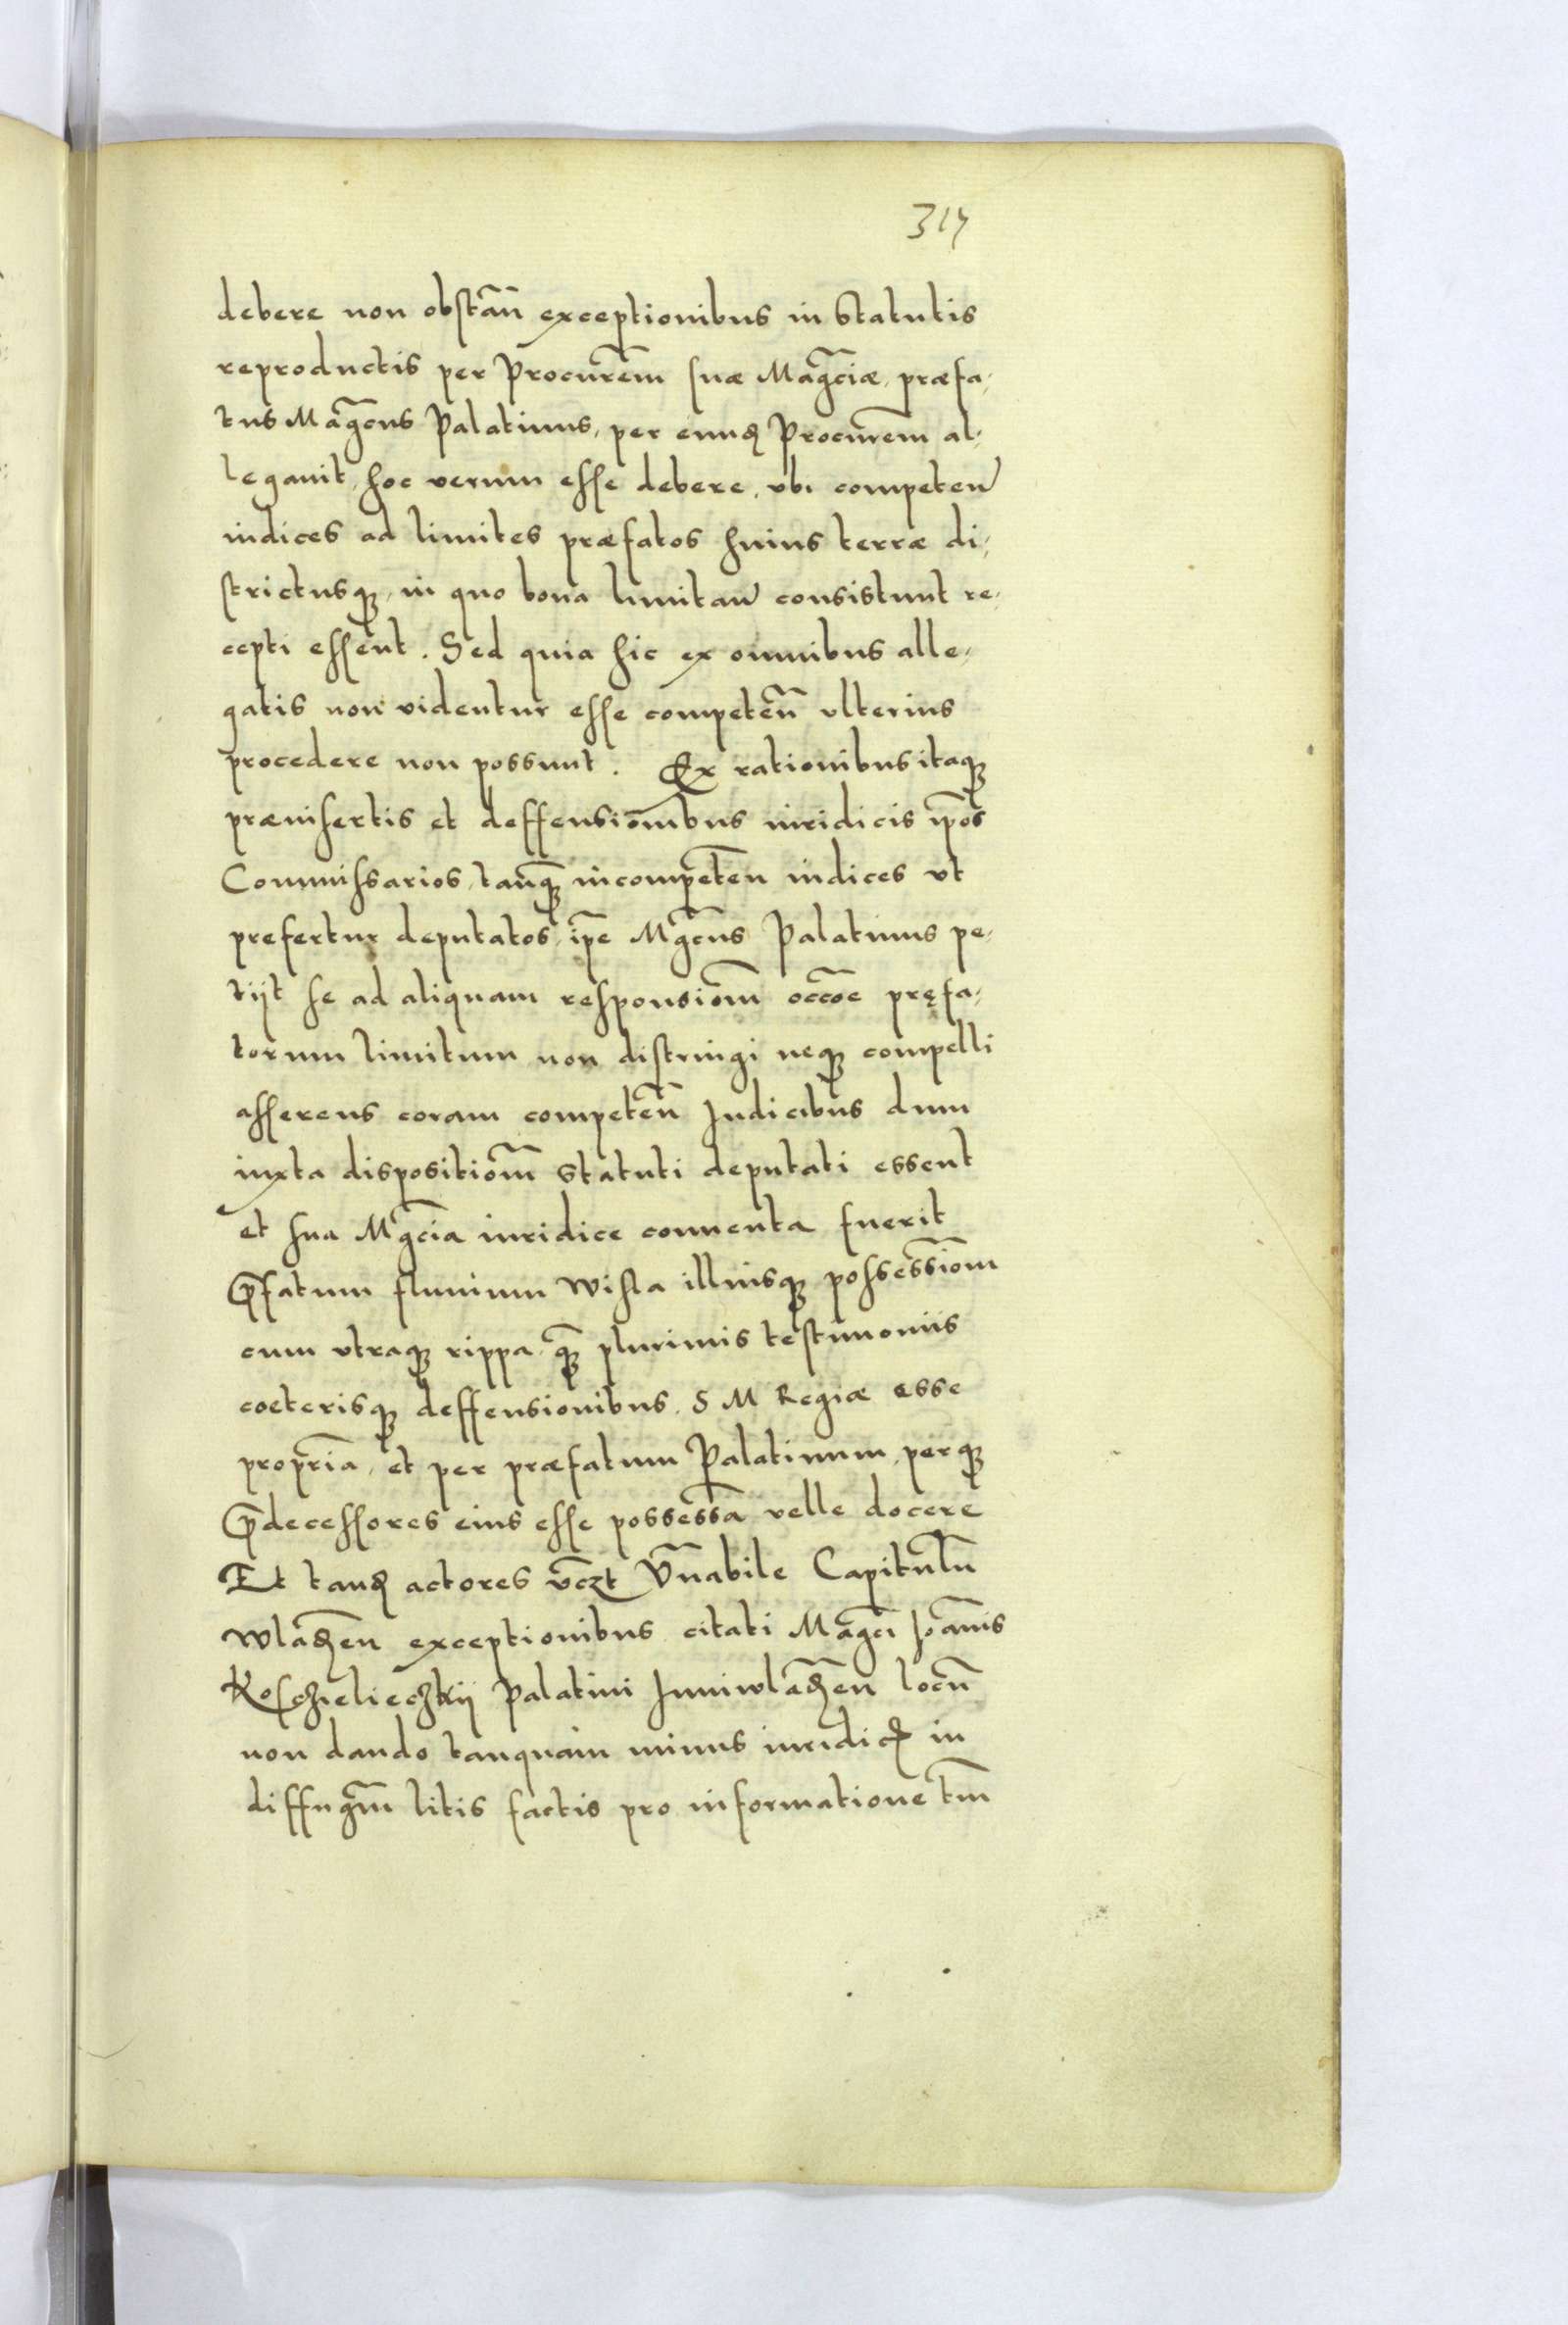 317
debere non obstan̄ exceptionibus in Statutis
reproductis per Procur̄em suæ Mag̃ciæ, præfa-
tus Mag̃cus Palatinus, per eund Procur̄em al-
legauit, hoc verum esse debere, vbi competen
iudices ad limites præfatos huius terræ di-
strictusq, in quo bona limitan consistunt re-
cepti essent. Sed quia hic ex omnibus alle-
gatis non videntur esse competen̄ vlterius
procedere non possunt. Ex rationibus itaq
præinsertis et deffensionibus iuridicis ip̄os
Commissarios, tanq̄ incompeten̄ iudices vt
prefertur deputatos, ip̄e Mg̃cus Palatinus pe-
tijt se ad aliquam responsiom̄ occ̄oe pręfa-
torum limitum non distringi neq compelli
asserens coram competen̄ Iudicibus dum
iuxta dispositiom̄ statuti deputati essent
et sua Mg̃cia iuridice conuenta fuerit
P̄fatum fluuium Wisla illiusq possessiom̄
cum vtraq rippa, q̄ plurimis testimoniis
coeterisq deffensionibus. S M Regiæ esse
propriā, et per præfatum Palatinum, perq
P̄decessores eius esse possessā velle docere
Et tand actores vc̄zt Vn̄abile Capitulūm
Wladen̄ exceptionibus citati Mag̃ci Ioānis
Koschielieczkij Palatini Iuniwladen̄ locū
non dando tanquam minus iuridic in
diffug̃m litis factis pro informatione tm̄